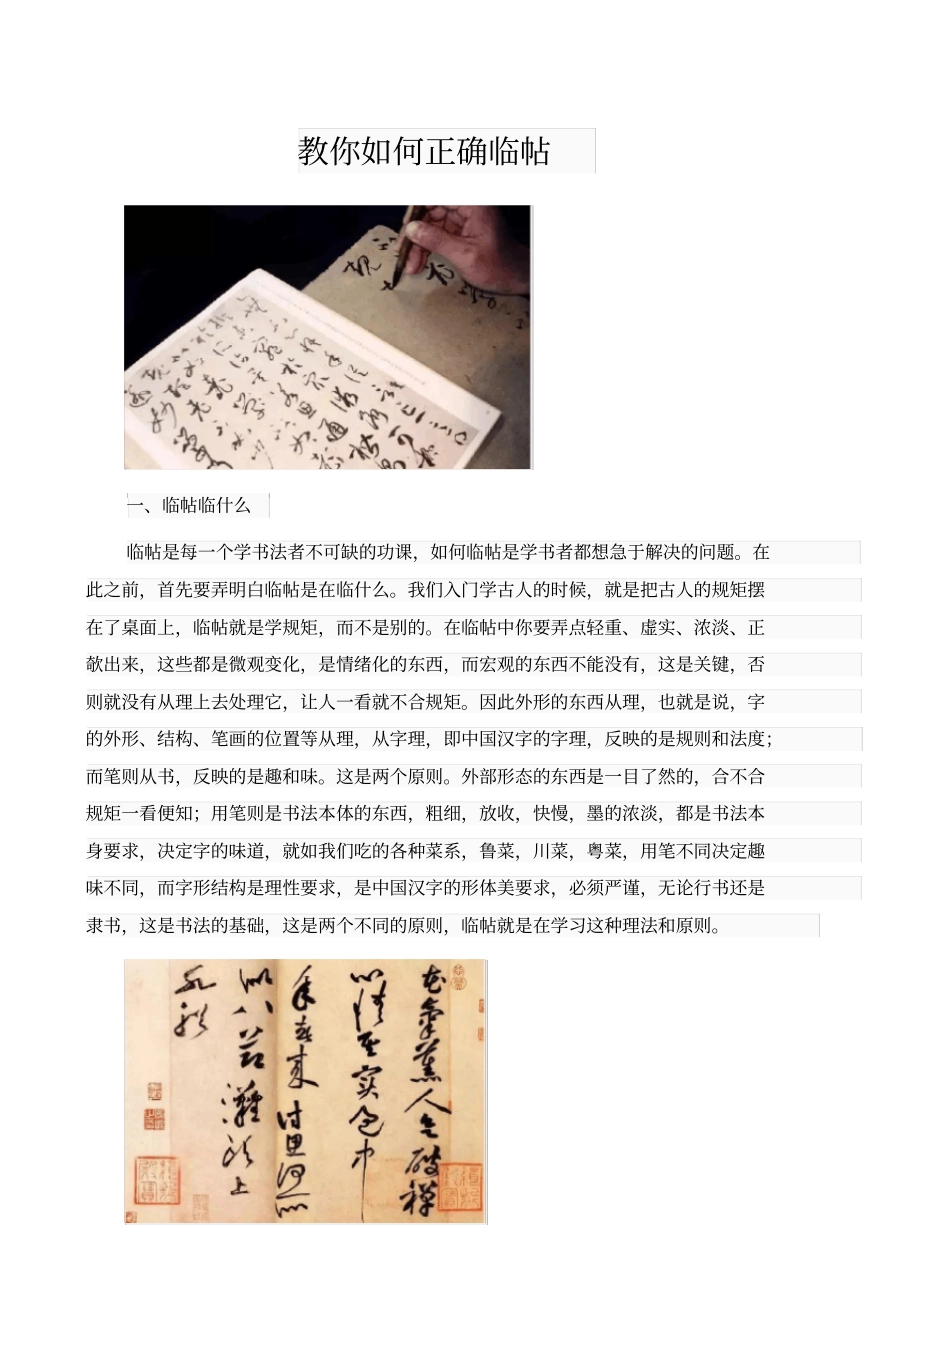 教你如何正确临帖
一、临帖临什么
临帖是每一个学书法者不可缺的功课，如何临帖是学书者都想急于解决的问题。在
此之前，首先要弄明白临帖是在临什么。我们入门学古人的时候，就是把古人的规矩摆
在了桌面上，临帖就是学规矩，而不是别的。在临帖中你要弄点轻重、虚实、浓淡、正
欹出来，这些都是微观变化，是情绪化的东西，而宏观的东西不能没有，这是关键，否
则就没有从理上去处理它，让人一看就不合规矩。因此外形的东西从理，也就是说，字
的外形、结构、笔画的位置等从理，从字理，即中国汉字的字理，反映的是规则和法度；
而笔则从书，反映的是趣和味。这是两个原则。外部形态的东西是一目了然的，合不合
规矩一看便知；用笔则是书法本体的东西，粗细，放收，快慢，墨的浓淡，都是书法本
身要求，决定字的味道，就如我们吃的各种菜系，鲁菜，川菜，粤菜，用笔不同决定趣
味不同，而字形结构是理性要求，是中国汉字的形体美要求，必须严谨，无论行书还是
隶书，这是书法的基础，这是两个不同的原则，临帖就是在学习这种理法和原则。
花氣薰人欲破禪
心情其實過中
年春來詩思何所
似八節灘頭上
水船